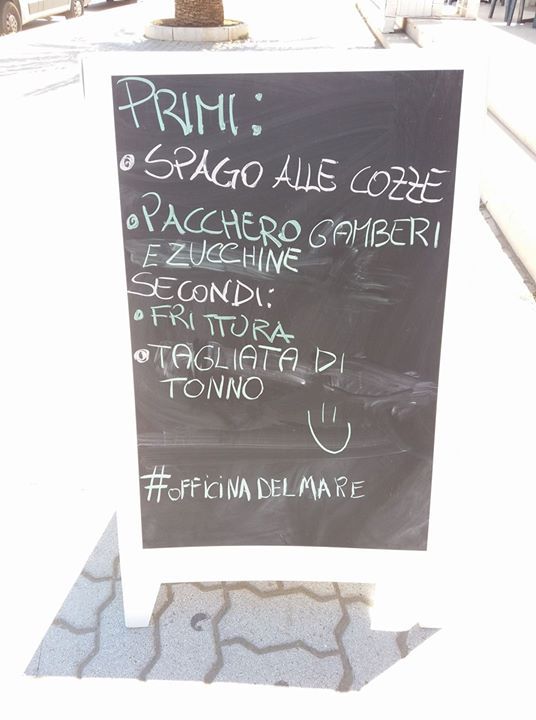 PRIMI:
• SPAGO ALLE COZZE
• PACCHERO GAMBERI
E ZUCCHINE
SECONDI:
• FRITTURA
• TAGLIATA DI
TONNO
#OFFICINADELMARE